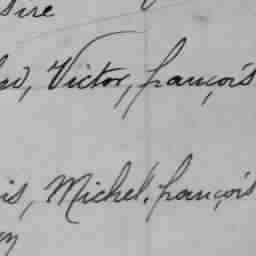 sire
Victor, françois
is, Michel, françois